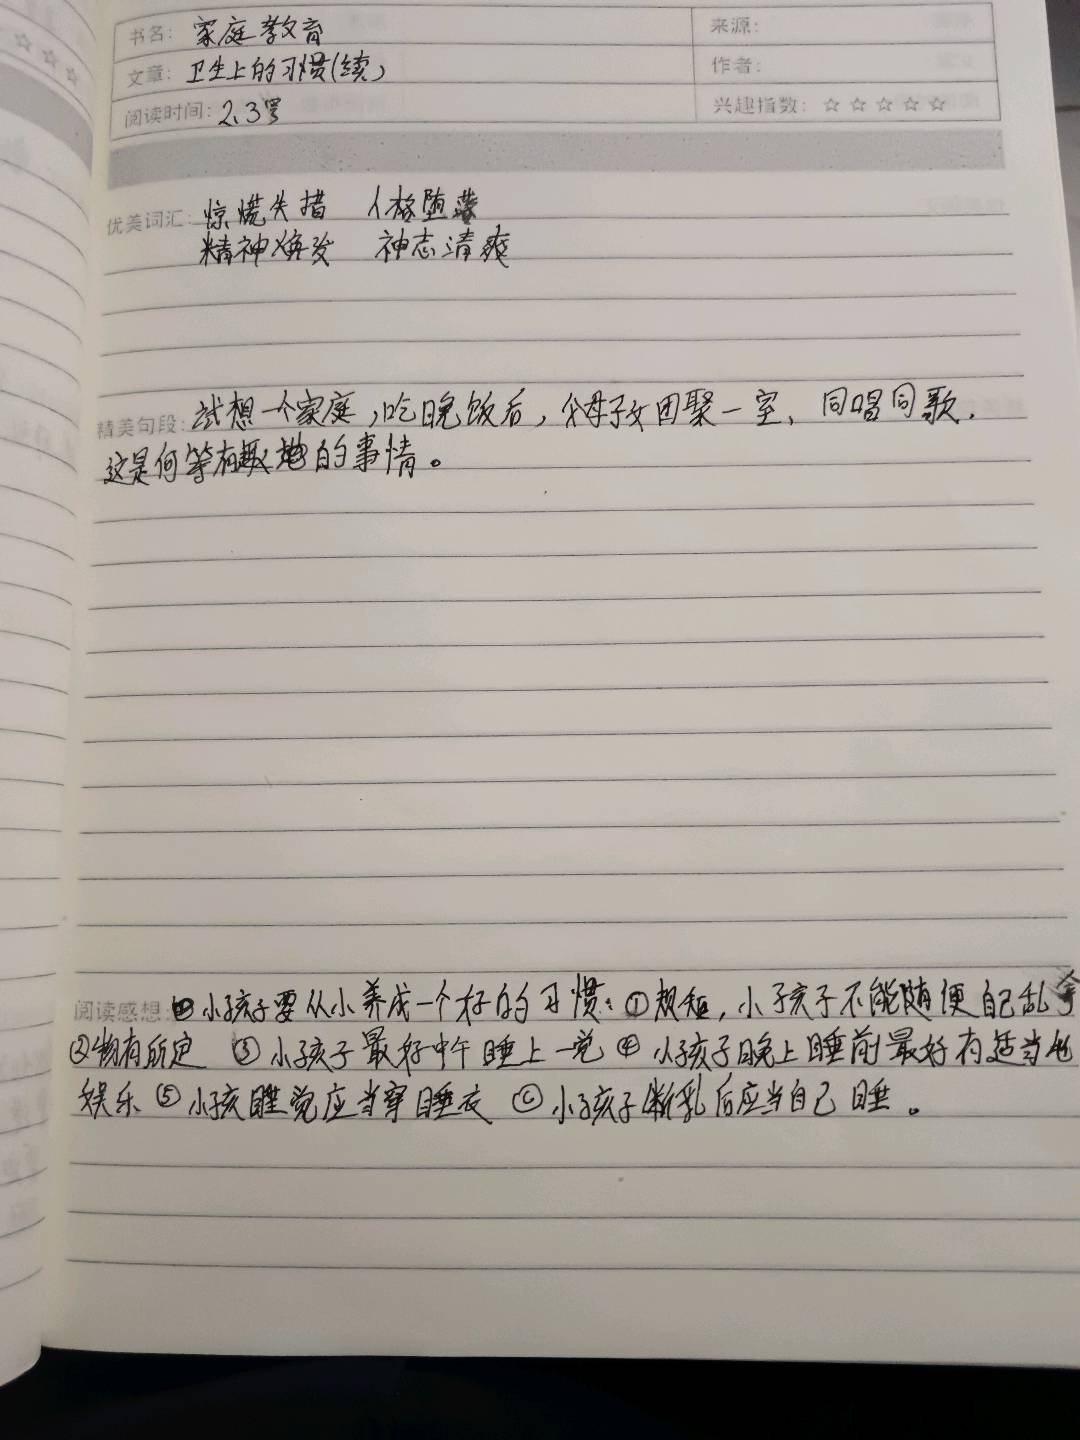 书名: 家庭教育 来源:
文章: 卫生上的习惯(续) 作者:
阅读时间: 2.3号 兴趣指数: ☆☆☆☆☆
优美词汇: 惊慌失措 人格堕落
精神焕发 神志清爽
精美句段: 试想一个家庭,吃晚饭后,父母子女团聚一室、同唱同歌.
这是何等有趣的事情。
阅读感想: 小孩子要从小养成一个好的习惯:①规矩,小孩子不能随便自己乱拿
②物有所定 ③小孩子最好中午睡上一觉 ④小孩子晚上睡前最好有适当地
娱乐 ⑤小孩睡觉应当穿睡衣 ⑥小孩子断乳后应当自己睡。